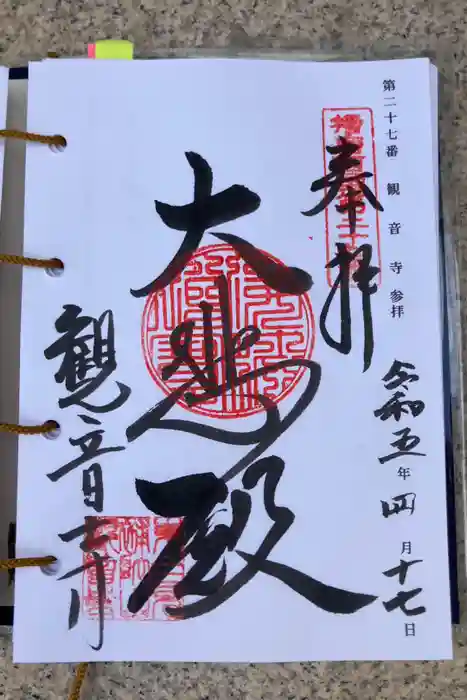 第二十七番 観音寺 参拝
令和五年四月十七日
奉拝
大悲殿
観音寺